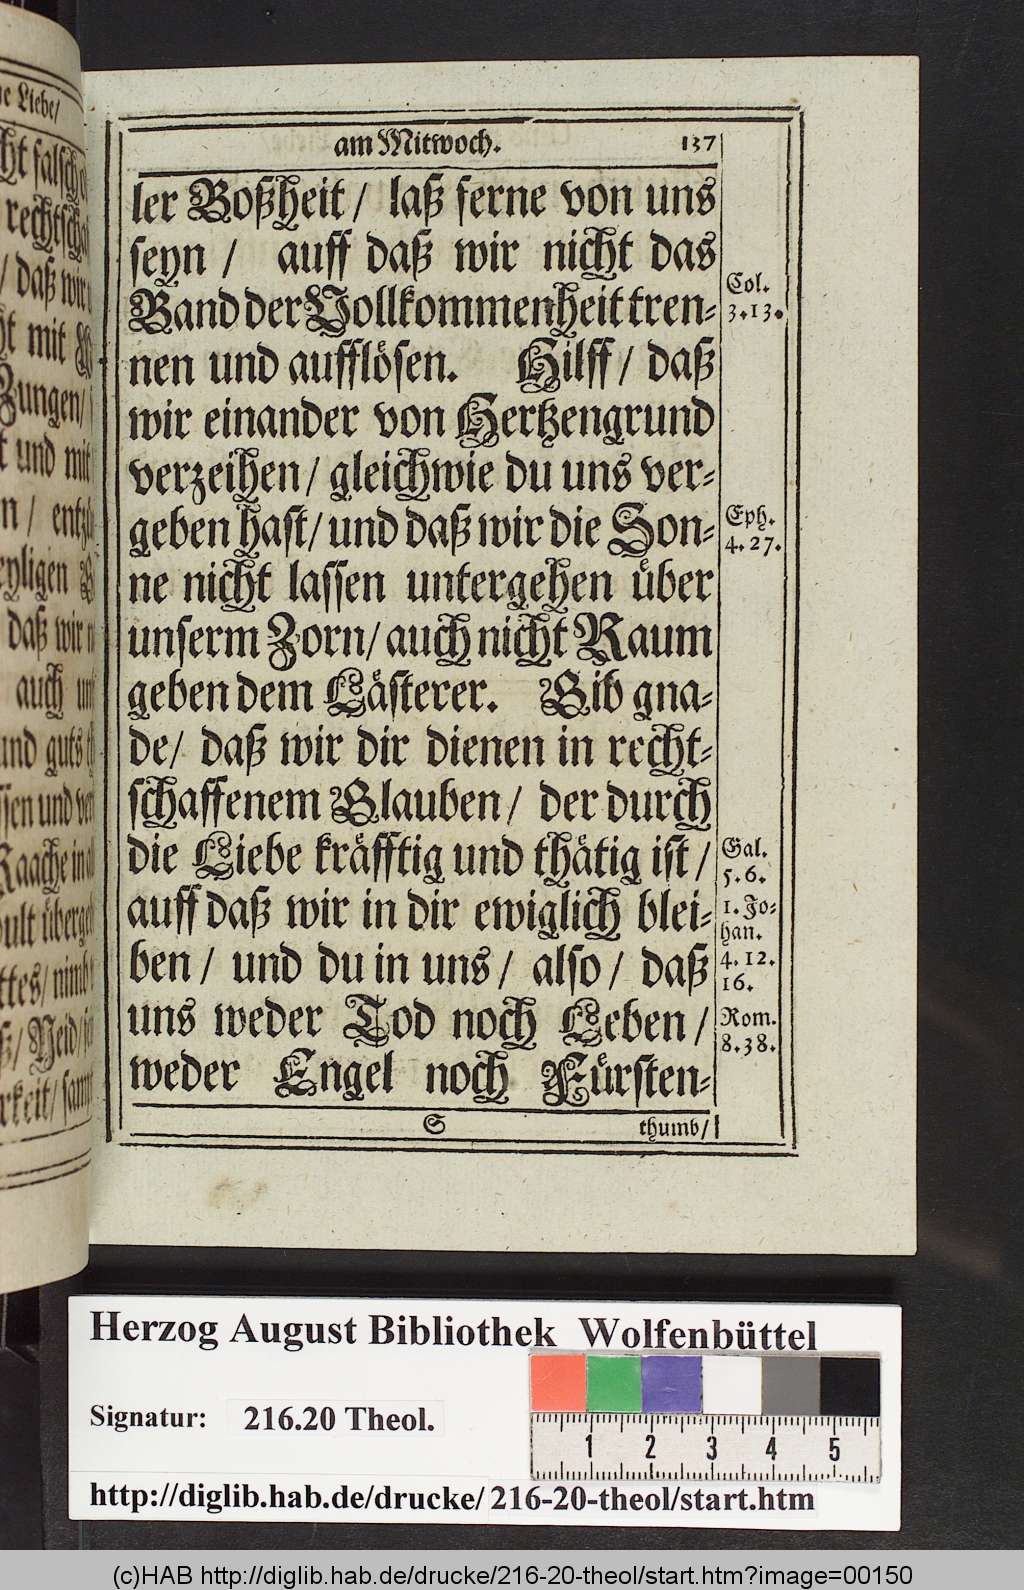 am Mitwoch. 137
ler Boßheit / laß ferne von uns
seyn / auff daß wir nicht das
Band der Vollkommenheit tren-
nen und aufflösen. Hilff / daß
wir einander von Hertzengrund
verzeihen / gleichwie du uns ver-
geben hast / und daß wir die Son-
ne nicht lassen untergehen über
unserm Zorn / auch nicht Raum
geben dem Lästerer. Gib gna-
de / daß wir dir dienen in recht-
schaffenem Glauben / der durch
die Liebe kräfftig und thätig ist /
auff daß wir in dir ewiglich blei-
ben / und du in uns / also / daß
uns weder Tod noch Leben /
weder Engel noch Fürsten-
S thumb /
Col.
3.13.
Eph.
4.27.
Gal.
5.6.
1. Jo-
han.
4.12.
16.
Rom.
8.38.
Liebe /
falsch
daß wir
mit
Zungen /
und mit
daß wir
auch
und guts
/ Neid /
Herzog August Bibliothek Wolfenbüttel
Signatur: 216.20 Theol.
1 2 3 4 5
http://diglib.hab.de/drucke/216-20-theol/start.htm
(c)HAB http://diglib.hab.de/drucke/216-20-theol/start.htm?image=00150